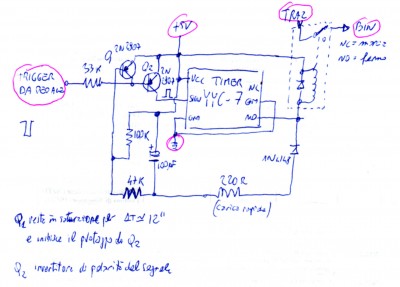 TRA2
+5V
BIN
NC = marcia
NO = fermo
Q1
2N3904
Q2
2N
3904
TRIGGER
DA PEDALE
33K
VCC TIMER
NC
SIGN
YYC-7
COM
GND
NO
100K
100µF
1N4148
47K
220R
(carica rapida)
Q1 resta in saturazione per ΔT ≃ 12"
e inibisce il pilotaggio di Q2
Q2 invertitore di polarità del segnale